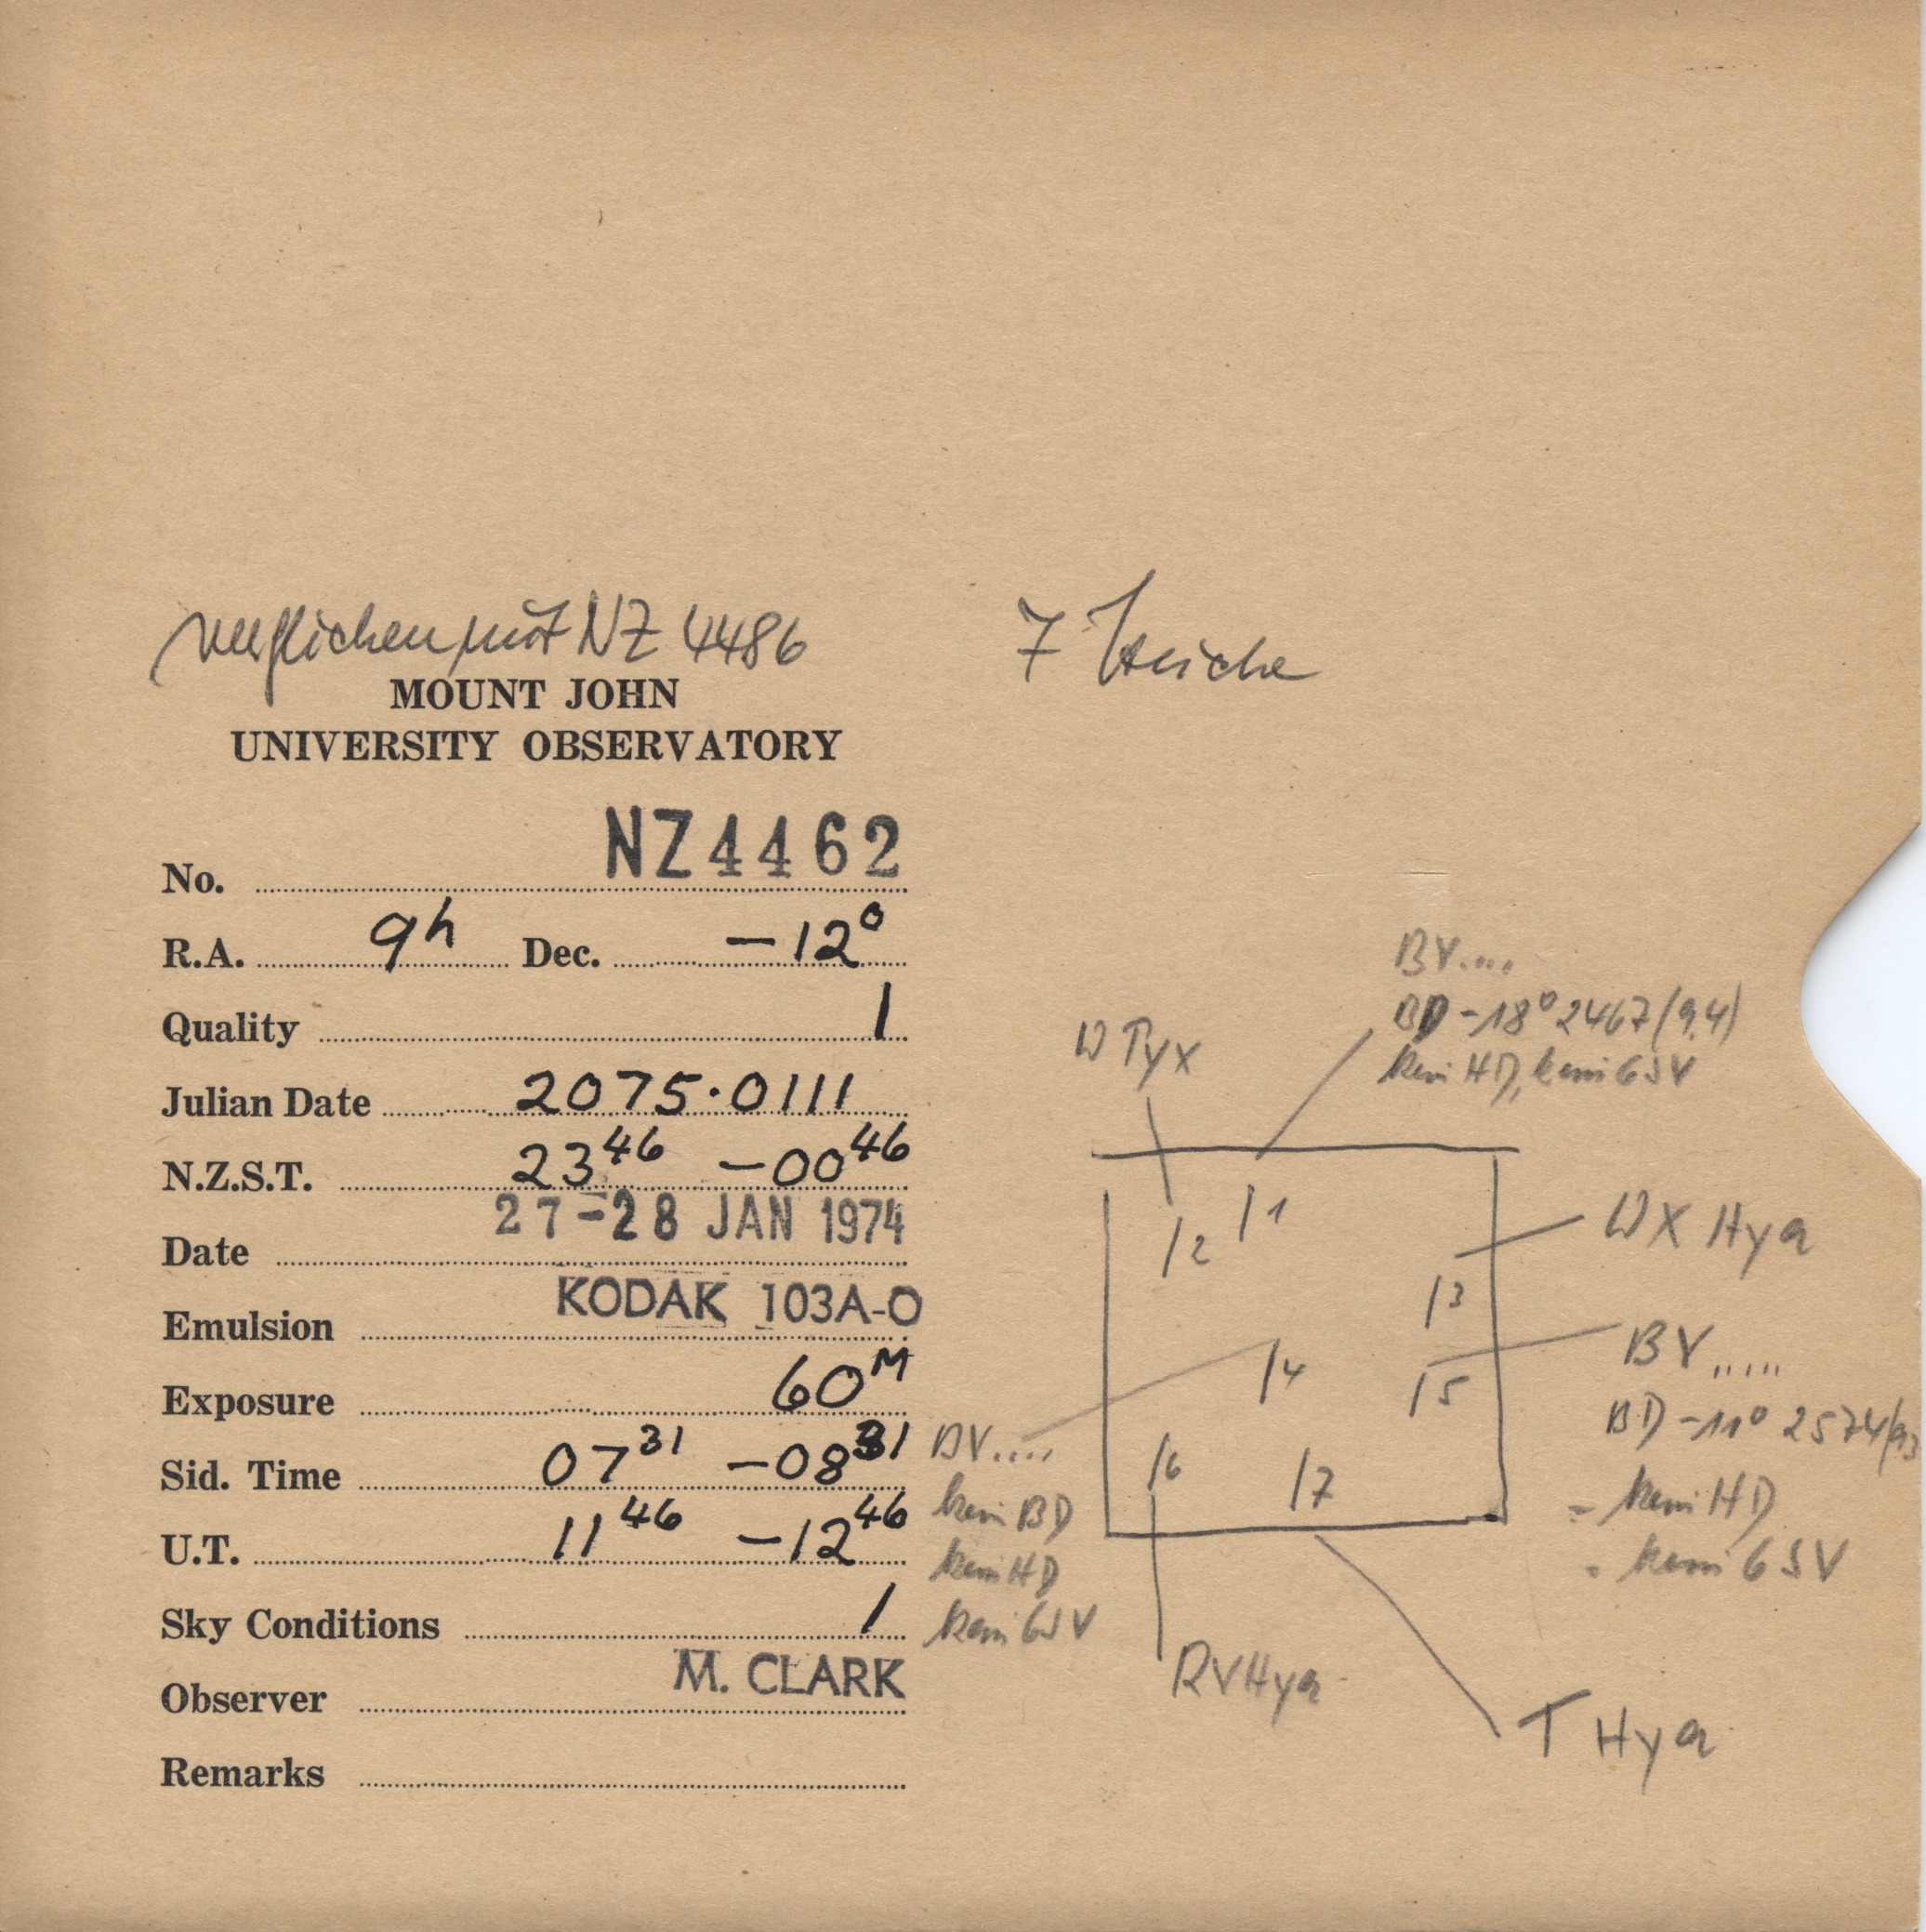 verglichen mit NZ 4486
7 Striche
MOUNT JOHN
UNIVERSITY OBSERVATORY
No. NZ4462
R.A. 9h Dec. -12°
Quality 1
Julian Date 2075.0111
N.Z.S.T. 23 46 -00 46
Date 27-28 JAN 1974
Emulsion KODAK 103A-O
Exposure 60 M
Sid. Time 07 31 -08 31
U.T. 11 46 -12 46
Sky Conditions 1
Observer M. CLARK
Remarks
BV....
BD -18° 2467 (9,4)
kein HD, kein GSV
W Pyx
/1
/2
WX Hya
/3
BV.....
BD -11° 2574
- kein HD
- kein GSV
/4
/5
BV....
kein BD
kein HD
kein GSV
/6
/7
RV Hya
T Hya